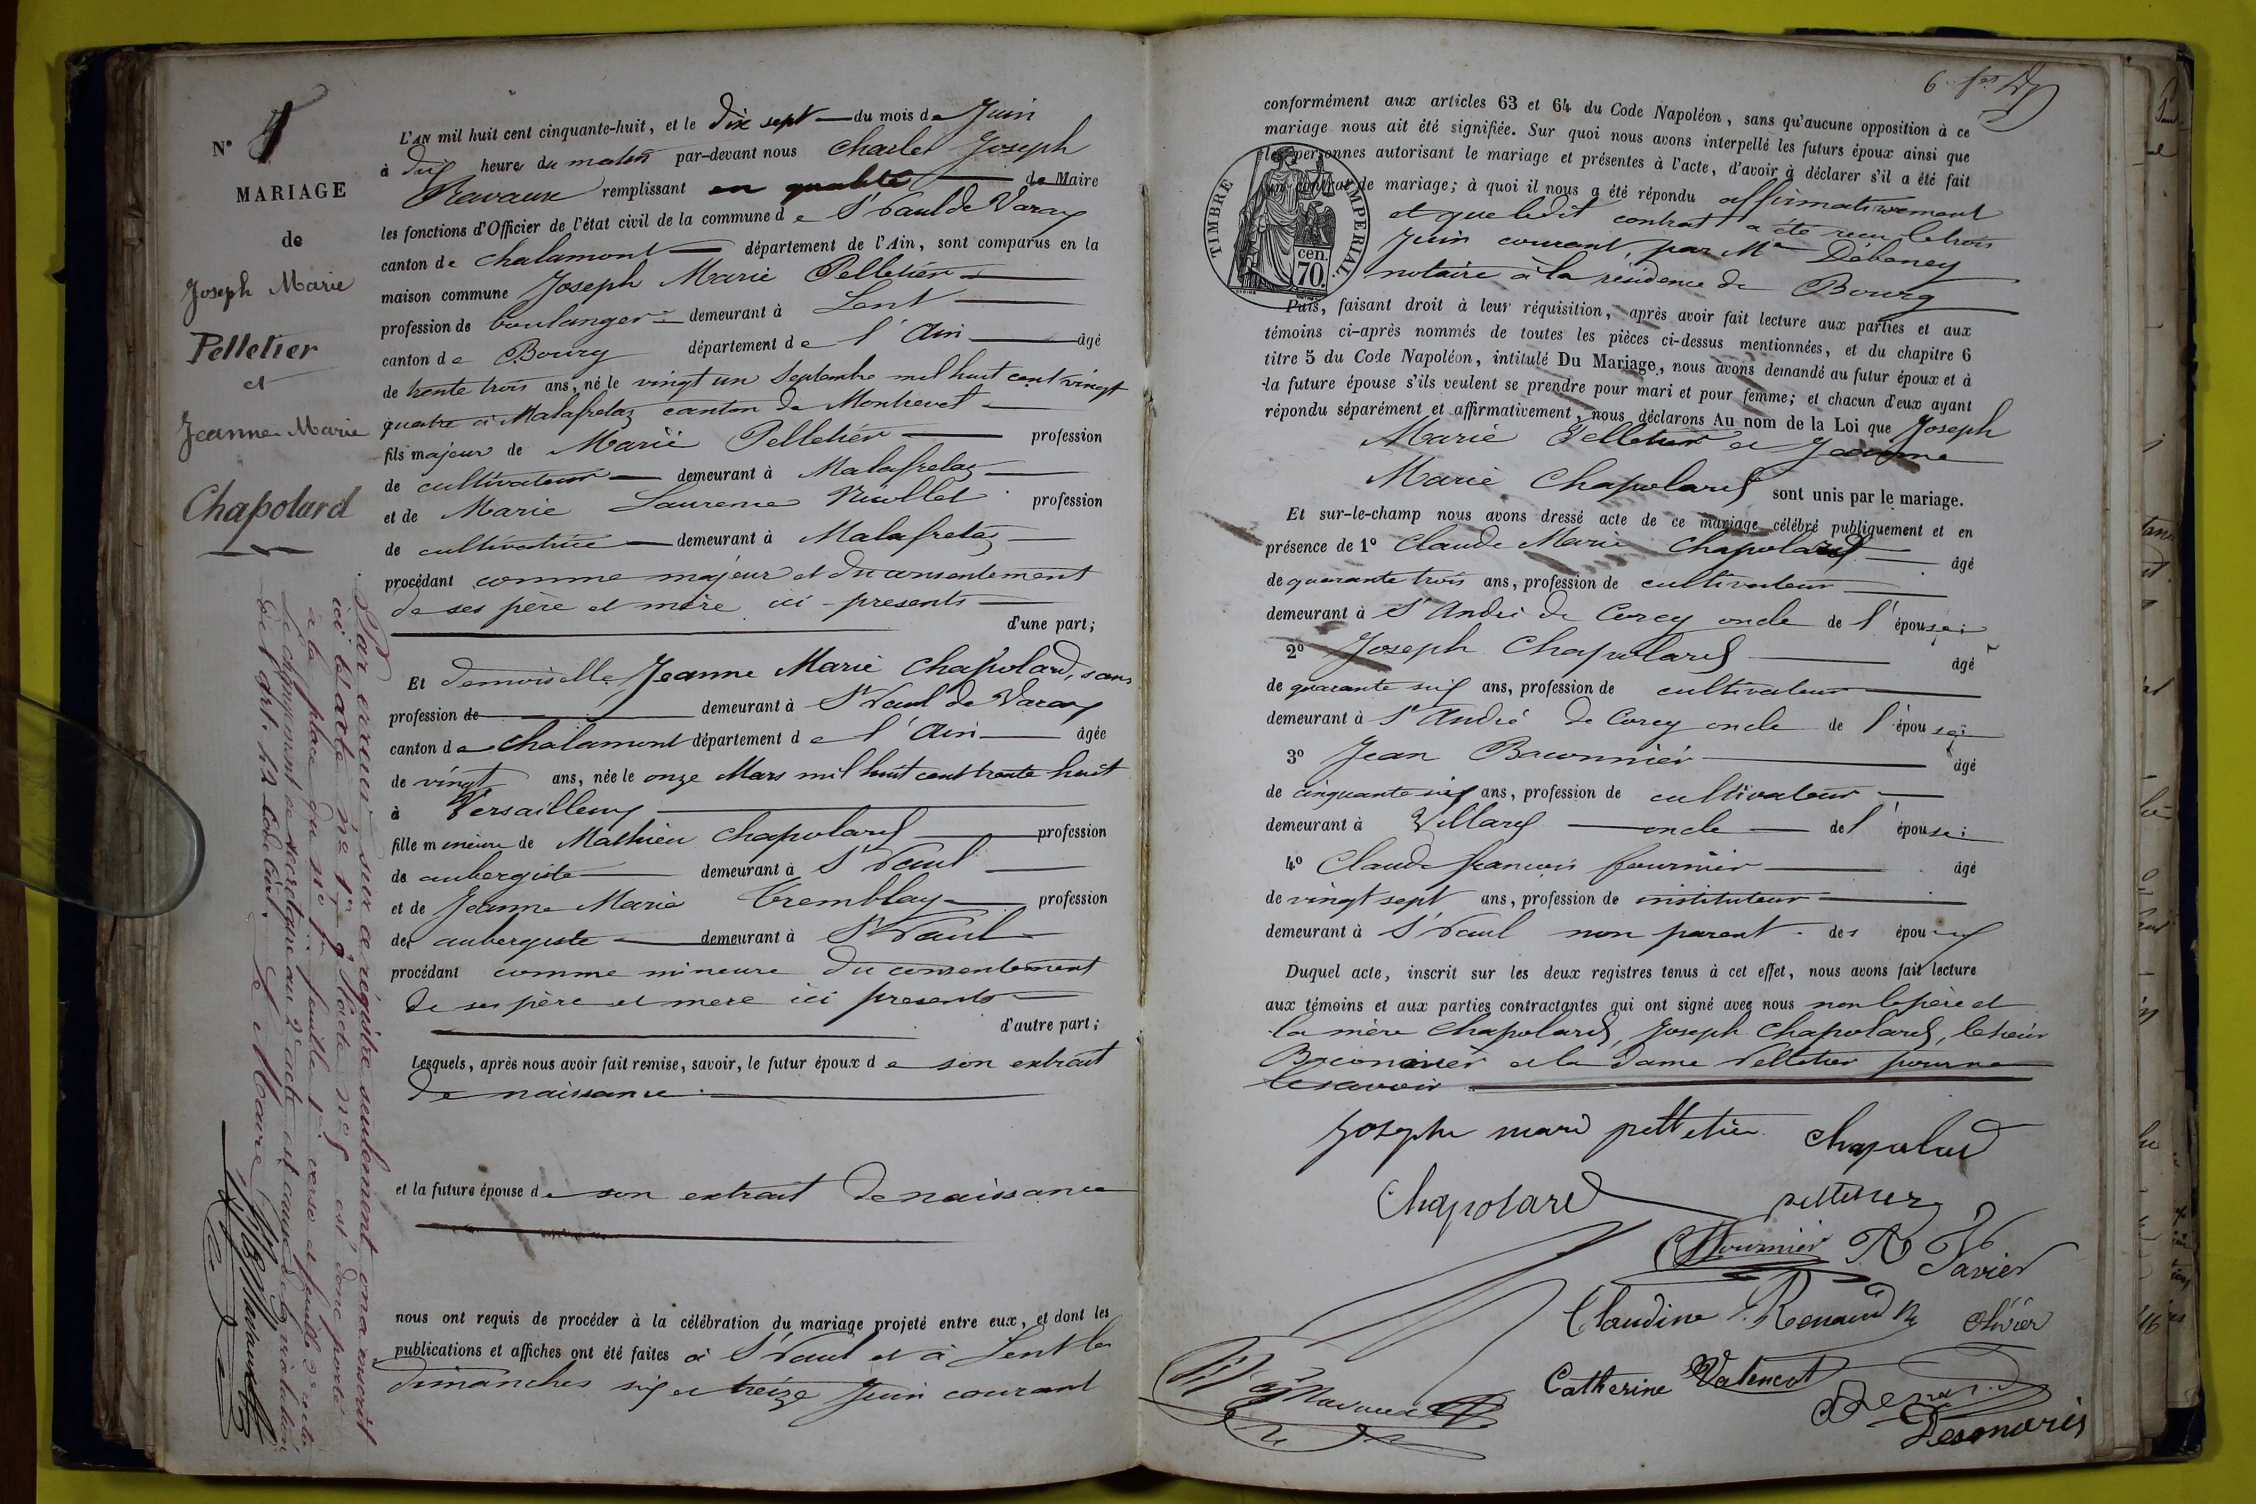 N° 5
MARIAGE
de
Joseph Marie
Pelletier
et
Jeanne Marie
Chapolard
Par erreur sur ce registre seulement on a inscrit
ici l'acte n° 1er; l'acte n° 5 est donc porté
à la place du n° 1er feuille 1ère verso et feuille 2e recto
Le changement de secrétaire au 2e acte est cause de la violation
de l'art. 42 Code Civil. Le Maire
L'AN mil huit cent cinquante-huit, et le dix sept du mois de Juin
à dix heures du matin par-devant nous Charles Joseph
Ravaux remplissant en qualité de Maire
les fonctions d'Officier de l'état civil de la commune de St Paul de Varax
canton de Chalamont département de l'Ain, sont comparus en la
maison commune Joseph Marie Pelletier
profession de boulanger demeurant à Lent
canton de Bourg département de l'Ain âgé
de trente trois ans, né le vingt un Septembre mil huit cent vingt
quatre à Malafretaz canton de Montrevel
fils majeur de Marie Pelletier profession
de cultivateur demeurant à Malafretaz
et de Marie Laurence Nicollet profession
de cultivatrice demeurant à Malafretaz
procédant comme majeur et du consentement
de ses père et mère ici présents
d'une part;
Et demoiselle Jeanne Marie Chapolard, sans
profession de demeurant à St Paul de Varax
canton de Chalamont département de l'Ain âgée
de vingt ans, née le onze Mars mil huit cent trente huit
à Versailleux
fille mineure de Mathieu Chapolard profession
de aubergiste demeurant à St Paul
et de Jeanne Marie Tremblay profession
de aubergiste demeurant à St Paul
procédant comme mineure du consentement
de ses père et mère ici présents
d'autre part;
Lesquels, après nous avoir fait remise, savoir, le futur époux de son extrait
de naissance
et la future épouse de son extrait de naissance
nous ont requis de procéder à la célébration du mariage projeté entre eux, et dont les
publications et affiches ont été faites à St Paul et à Lent les
dimanches six et treize Juin courant
conformément aux articles 63 et 64 du Code Napoléon, sans qu'aucune opposition à ce
mariage nous ait été signifiée. Sur quoi nous avons interpellé les futurs époux ainsi que
les personnes autorisant le mariage et présentes à l'acte, d'avoir à déclarer s'il a été fait
un contrat de mariage; à quoi il nous a été répondu affirmativement
et que ledit contrat a été reçu le trois
Juin courant, par Me Débeney
notaire à la résidence de Bourg
TIMBRE IMPERIAL
70 cen.
Puis, faisant droit à leur réquisition, après avoir fait lecture aux parties et aux
témoins ci-après nommés de toutes les pièces ci-dessus mentionnées, et du chapitre 6
titre 5 du Code Napoléon, intitulé Du Mariage, nous avons demandé au futur époux et à
la future épouse s'ils veulent se prendre pour mari et pour femme; et chacun d'eux ayant
répondu séparément et affirmativement, nous déclarons Au nom de la Loi que Joseph
Marie Pelletier et Jeanne
Marie Chapolard sont unis par le mariage.
Et sur-le-champ nous avons dressé acte de ce mariage célébré publiquement et en
présence de 1° Claude Marie Chapolard âgé
de quarante trois ans, profession de cultivateur
demeurant à St André de Corcy oncle de l'épouse;
2° Joseph Chapolard âgé
de quarante six ans, profession de cultivateur
demeurant à St André de Corcy oncle de l'épouse;
3° Jean Braconnier âgé
de cinquante six ans, profession de cultivateur
demeurant à Villars oncle de l'épouse;
4° Claude françois fournier âgé
de vingt sept ans, profession de instituteur
demeurant à St Paul non parent des époux
Duquel acte, inscrit sur les deux registres tenus à cet effet, nous avons fait lecture
aux témoins et aux parties contractantes qui ont signé avec nous non le père et
la mère Chapolard, Joseph Chapolard, le sieur
Braconnier et la dame Pelletier pour ne
le savoir
Joseph mari pelletier Chapolard
Chapolard pelletier
Fournier
Javier
Claudine Renaud
Olivier
Catherine Valencot
Ravaux
Desmaris